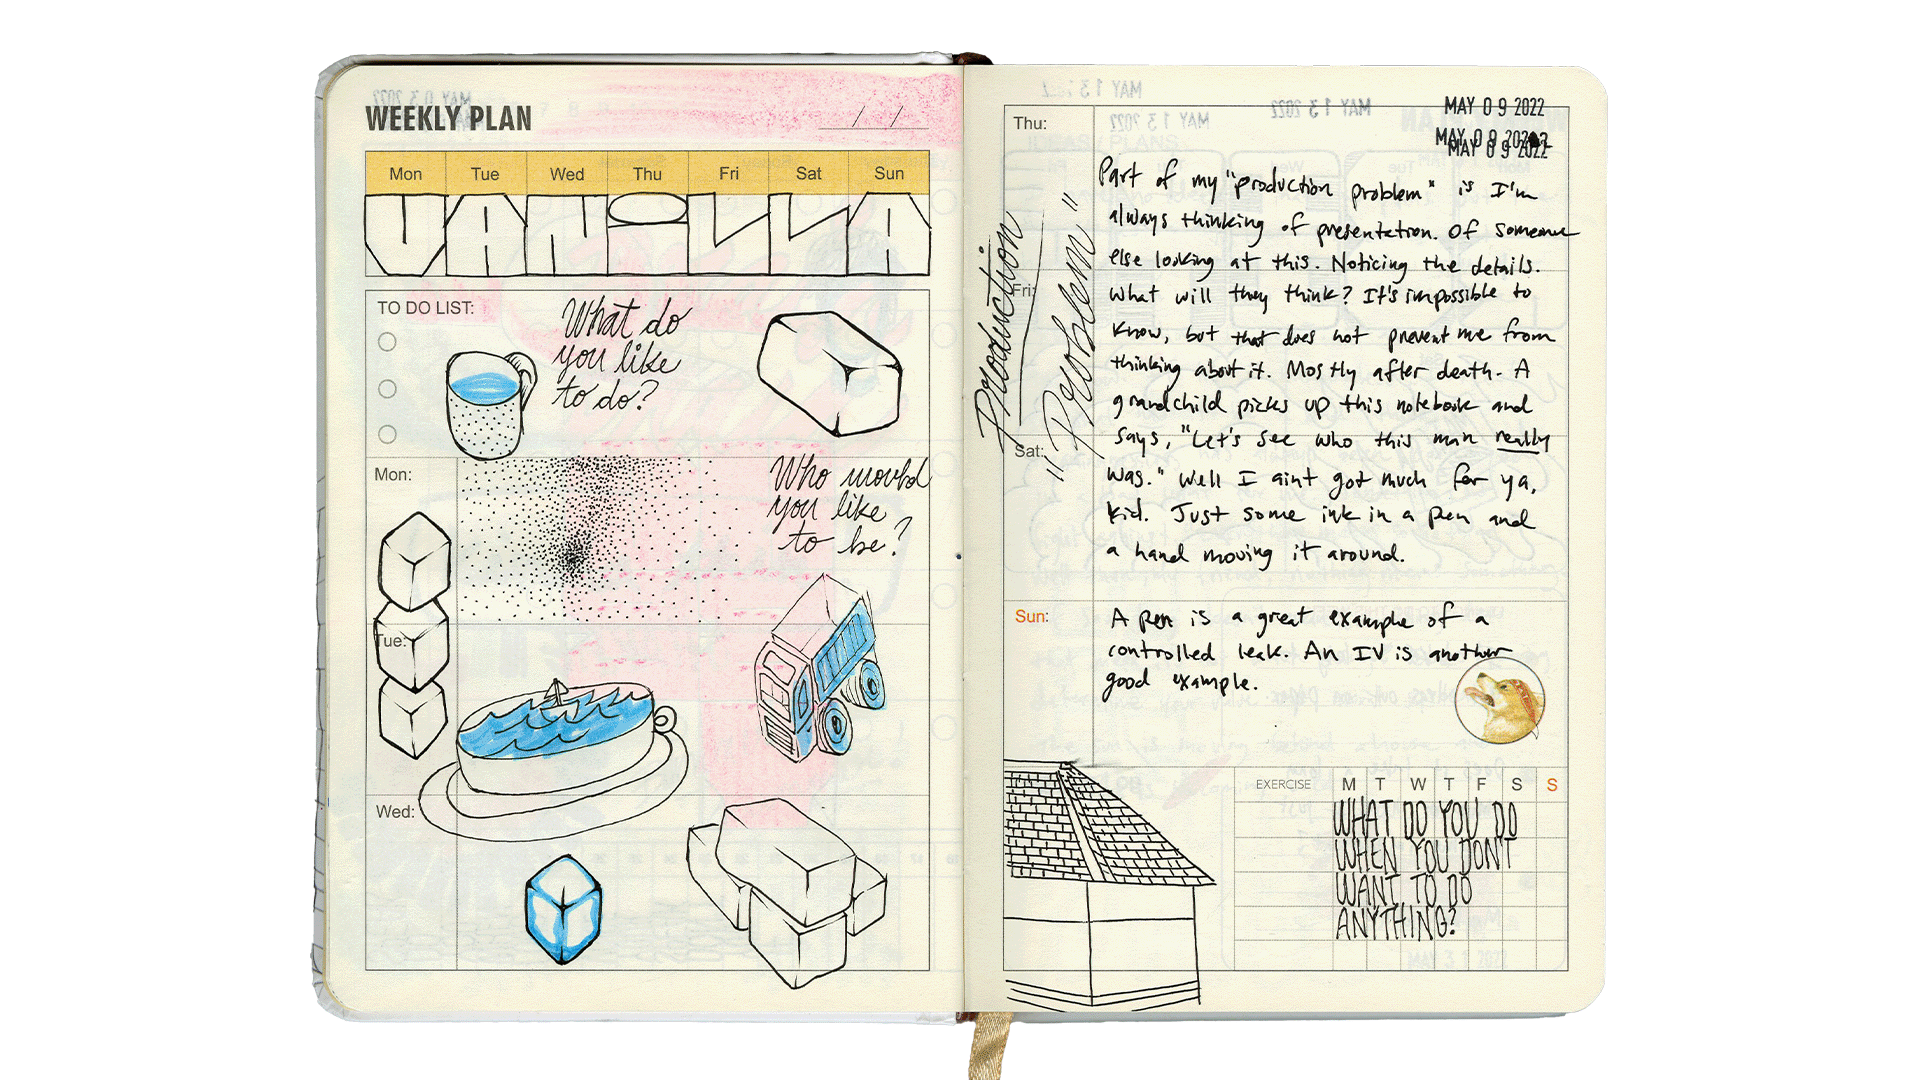 WEEKLY PLAN
/ /
Mon Tue Wed Thu Fri Sat Sun
VANiLLA
TO DO LIST:
What do
you like
to do?
Mon:
Who would
you like
to be?
Tue:
Wed:
MAY 09 2022
MAY 09 2022
MAY 09 2022
Thu:
Fri:
Sat:
Production
"Problem"
Part of my "production problem" is I'm
always thinking of presentation. Of someone
else looking at this. Noticing the details.
What will they think? It's impossible to
know, but that does not prevent me from
thinking about it. Mostly after death. A
grandchild picks up this notebook and
says, "Let's see who this man really
was." Well I aint got much for ya,
kid. Just some ink in a pen and
a hand moving it around.
Sun:
A pen is a great example of a
controlled leak. An IV is another
good example.
EXERCISE M T W T F S S
WHAT DO YOU DO
WHEN YOU DON'T
WANT TO DO
ANYTHING?